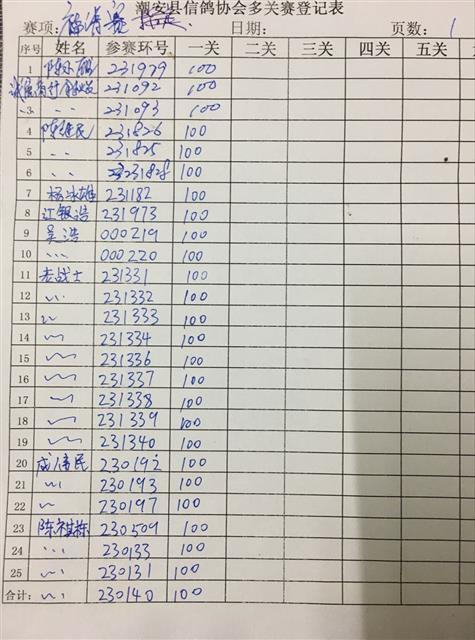 潮安县信鸽协会多关赛登记表
赛项: 福清赛 指定 日期: 页数: 1
序号 姓名 参赛环号 一关 二关 三关 四关 五关
1 陈小鹏 231979 100
231092 100
3 〃 231093 100
4 陈继民 231826 100
5 〃 231825 100
6 〃 231828 100
7 杨冰雄 231182 100
8 江银浩 231973 100
9 吴浩 000219 100
10 〃 000220 100
11 老战士 231331 100
12 〃 231332 100
13 〃 231333 100
14 〃 231334 100
15 〃 231336 100
16 〃 231337 100
17 〃 231338 100
18 〃 231339 100
19 〃 231340 100
20 成伟民 230192 100
21 〃 230193 100
22 〃 230197 100
23 陈祺栋 230509 100
24 〃 230133 100
25 〃 230131 100
合计: 〃 230140 100